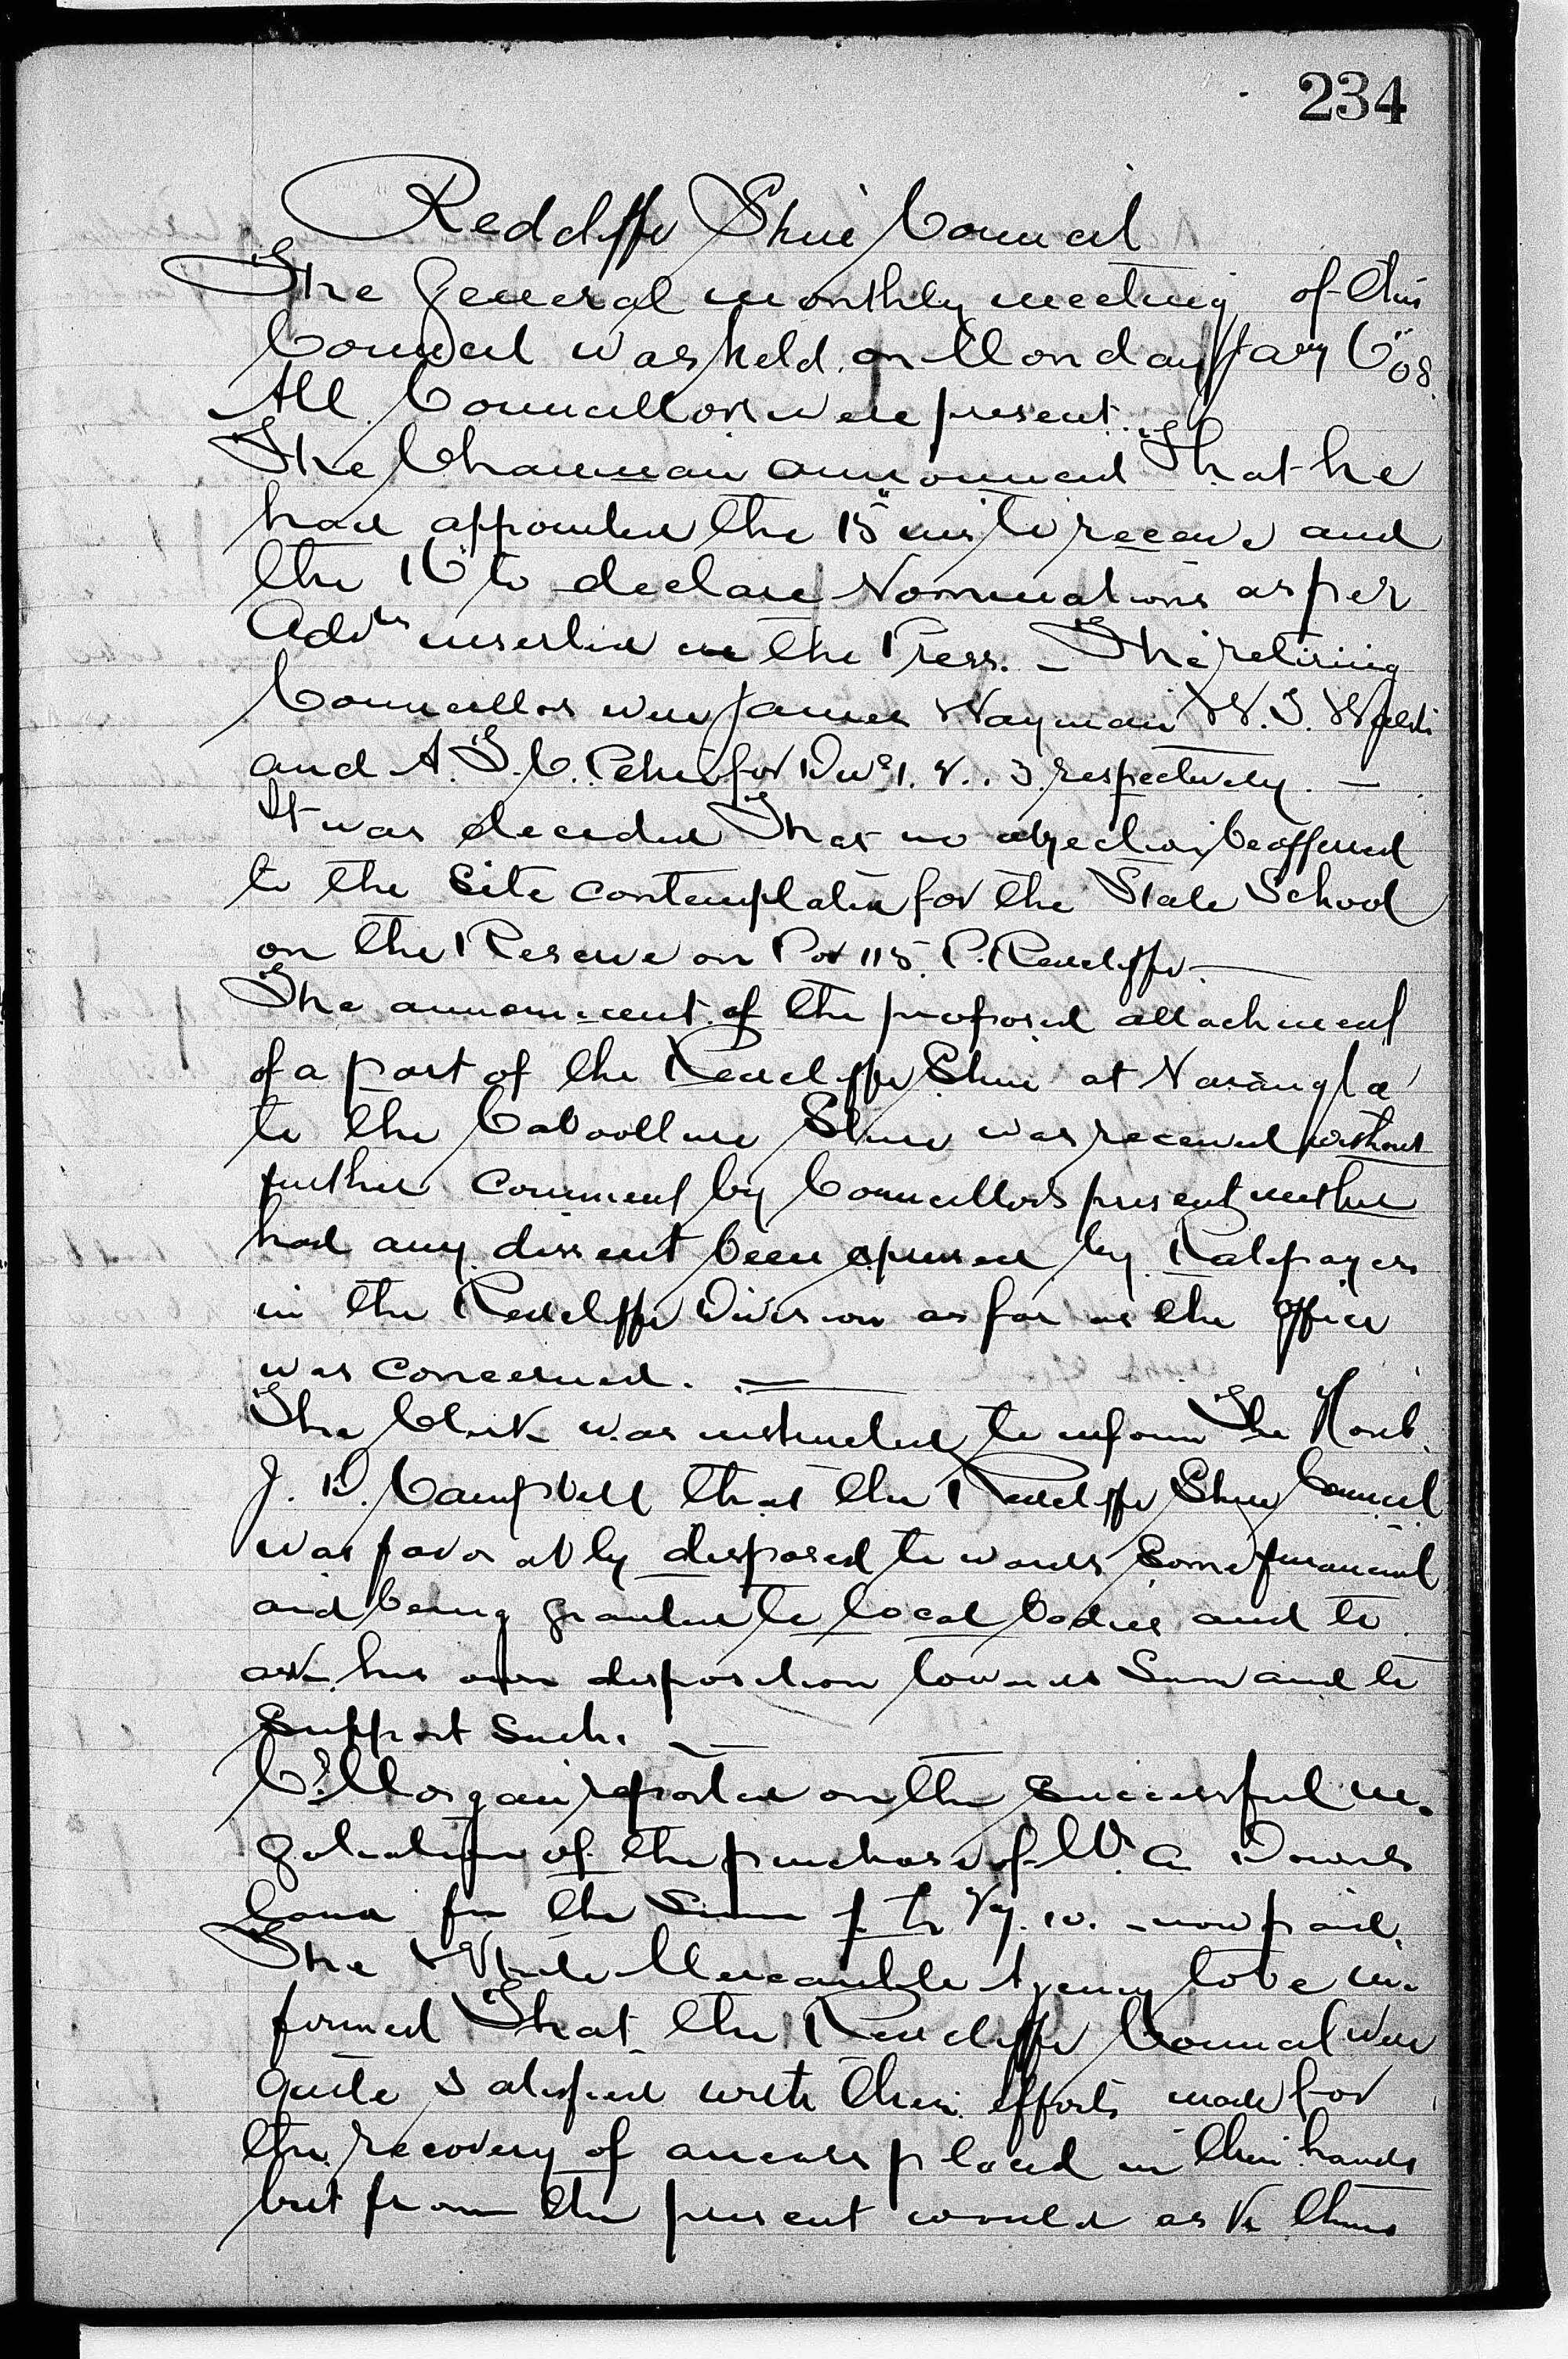 234
Redcliffe Shire Council
The General monthly meeting of this
Council was held on Monday Jany 6" 08.
All Councillors were present.
The Chairman announced That he
had appointed the 15" inst to receive and
the 16" to declare Nominations as per
Advts inserted in the Press. — The retiring
Councillors were James Wayman W. T. Walsh
and A. T. C. for Divs 1. 2. 3 respectively. —
It was decided That no objection be offered
to the Site contemplated for the State School
on the Reserve on Por 115. P. Redcliffe —
The announcement of the proposed attachment
of a part of the Redcliffe Shire at Narangba
to the Caboolture Shire was received without
further comment by Councillors present neither
had any dissent been expressed by Ratepayers
in the Redcliffe Division as far as the office
was concerned. —
The Clerk was instructed to inform The Honb.
J. D. Campbell that the Redcliffe Shire Council
was favorably disposed towards Some financial
aid being granted to local bodies and to
ask his own disposition towards Same and to
Support Such. —
Cr Morgan reported on the Successful ne-
gotiation of the purchase of Wm A
Land for the Sum of 10. – now paid.
The Mercantile Agency to be in-
formed That the Redcliffe Council were
quite satisfied with their efforts made for
the recovery of arrears placed in their hands
but from the present would ask them